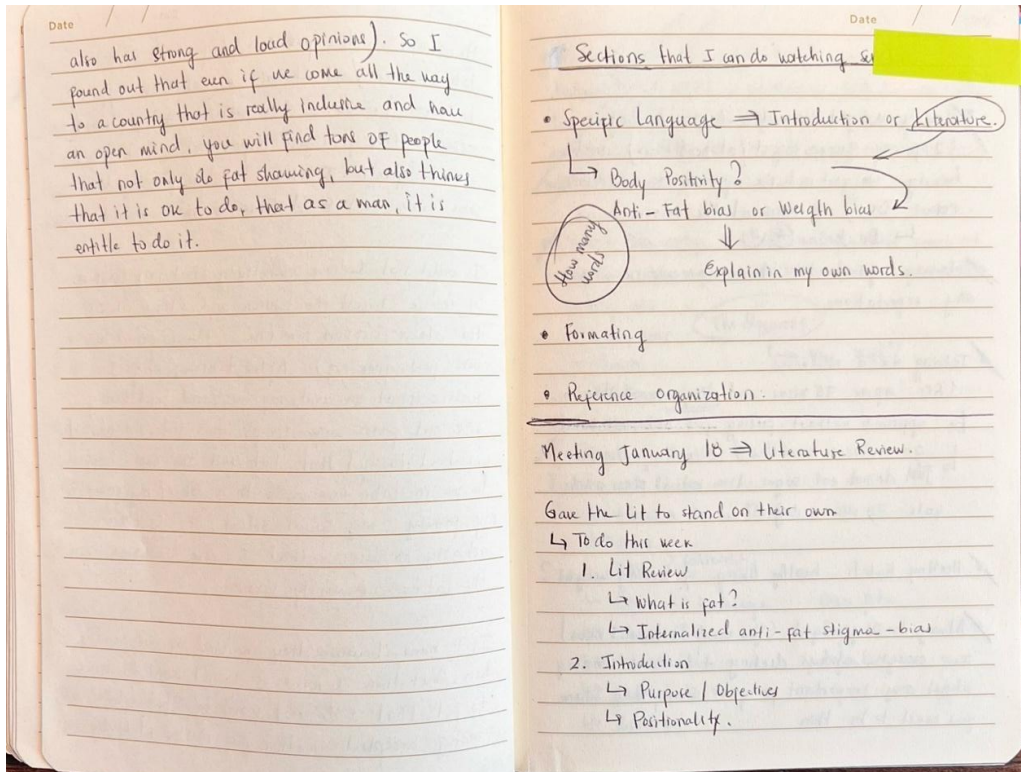 Date
also has strong and loud opinions). So I
found out that even if we come all the way
to a country that is really inclusive and have
an open mind, you will find tons of people
that not only do fat shaming, but also thinks
that it is ok to do, that as a man, it is
entitle to do it.
Date
Sections that I can do watching
• Specific Language ⇒ Introduction or Literature.
↳ Body Positivity?
Anti-Fat bias or Weigth bias
How many
words
⇓
Explain in my own words.
• Formating
• Reference organization.
Meeting January 18 ⇒ Literature Review.
Gave the Lit to stand on their own
↳ To do this week
1. Lit Review
↳ What is fat?
↳ Internalized anti-fat stigma-bias
2. Introduction
↳ Purpose / Objectives
↳ Positionality.